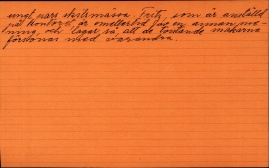 ungt pars skrivmåsea Fritz, som är anställd
på kontoret, är emellertid av en annan me-
ning, och lagar så, att de tordande makarna
försonas med varandra.